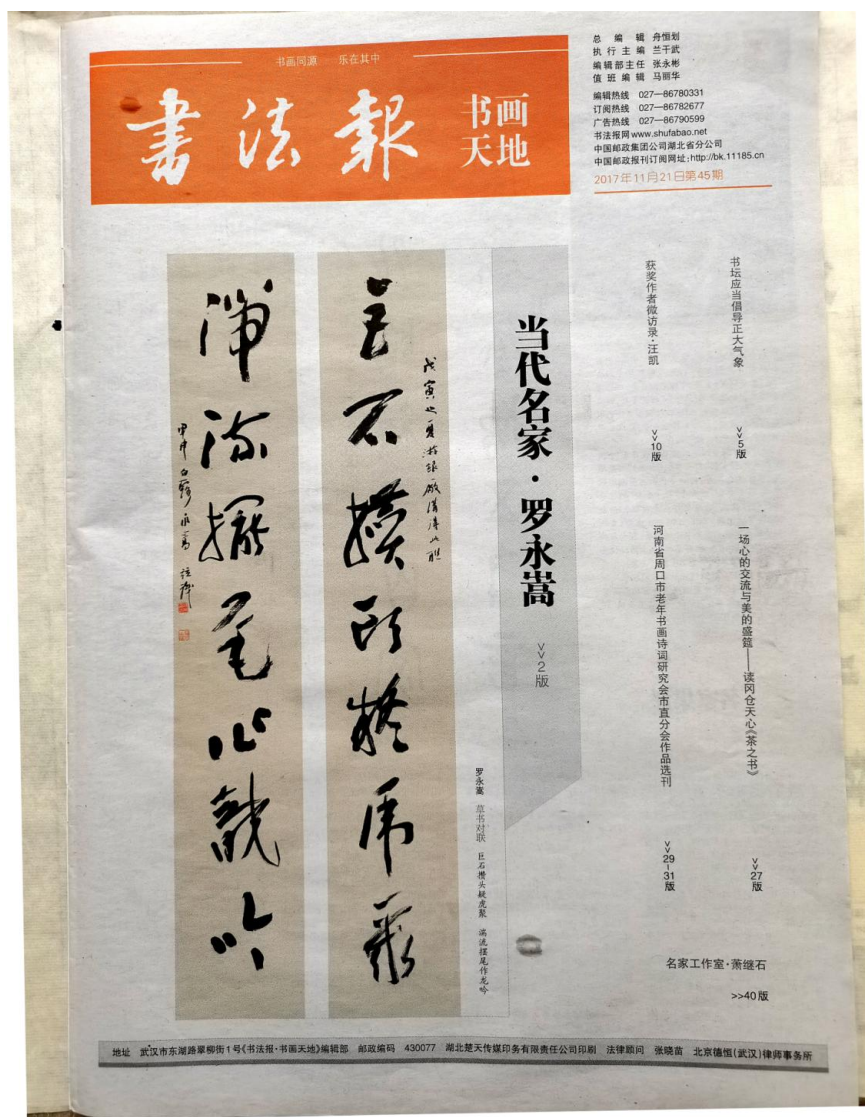 书画同源 乐在其中
書法報
书画
天地
总编辑 舟恒划
执行主编 兰干武
编辑部主任 张永彬
值班编辑 马丽华
编辑热线 027—86780331
订阅热线 027—86782677
广告热线 027—86790599
书法报网www.shufabao.net
中国邮政集团公司湖北省分公司
中国邮政报刊订阅网址:http://bk.11185.cn
2017年11月21日第45期
书坛应当倡导正大气象
>>5版
获奖作者微访录·汪凯
>>10版
一场心的交流与美的盛筵——读冈仓天心《茶之书》
>>27版
河南省周口市老年书画诗词研究会市直分会作品选刊
>>29-31版
名家工作室·萧继石
>>40版
当代名家·罗永嵩
>>2版
罗永嵩 草书对联 巨石攒头疑虎聚 湍流摆尾作龙吟
地址 武汉市东湖路翠柳街1号《书法报·书画天地》编辑部 邮政编码 430077 湖北楚天传媒印务有限责任公司印刷 法律顾问 张晓苗 北京德恒(武汉)律师事务所